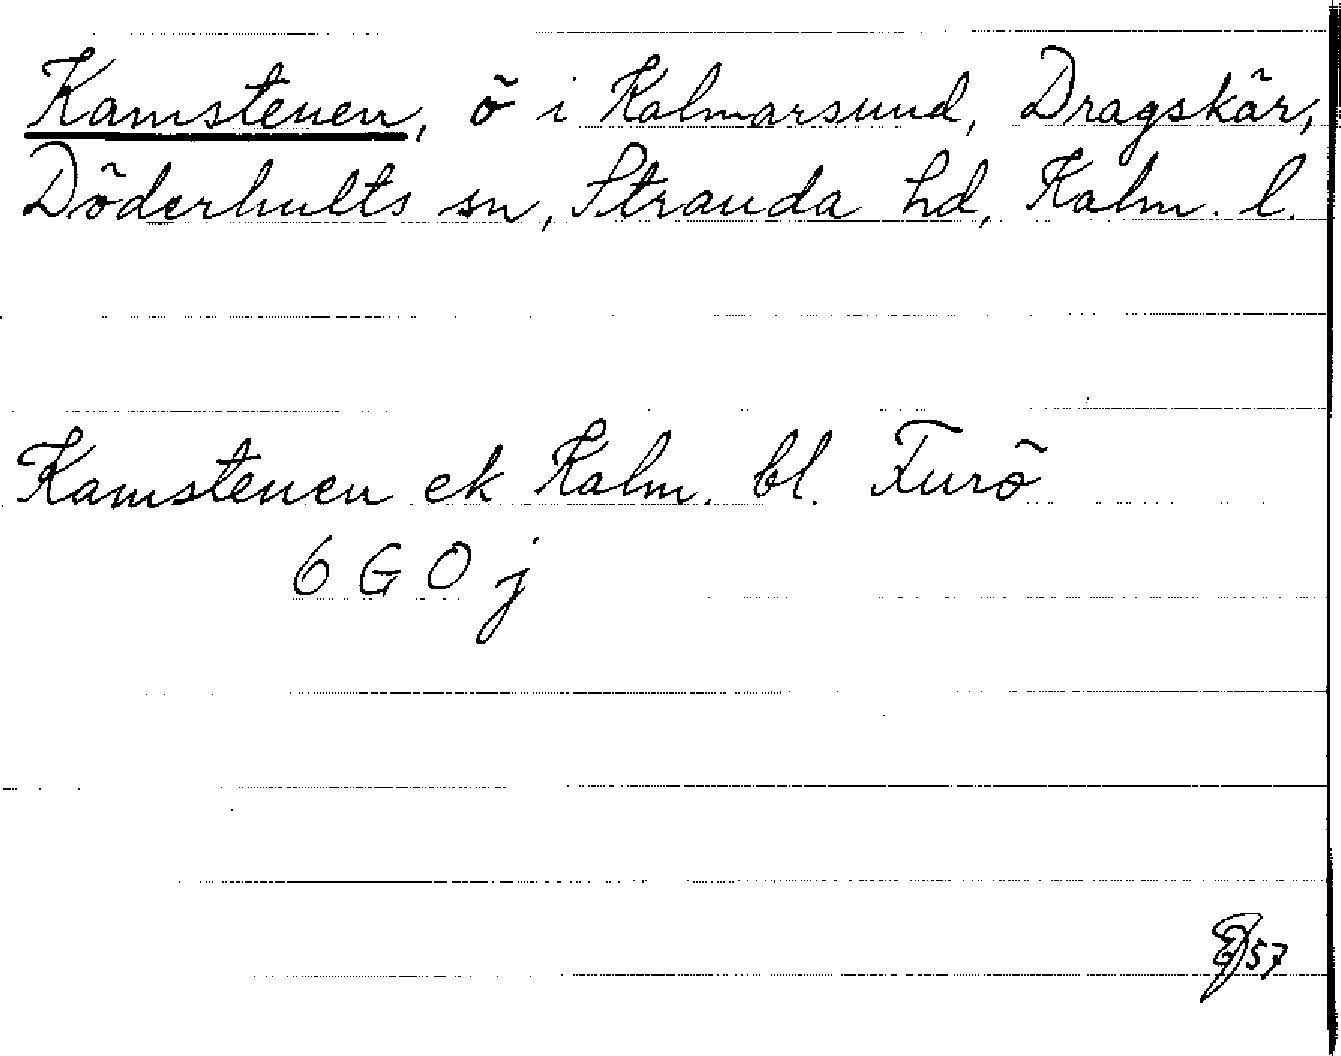 Kamstenen, ö i Kalmarsund, Dragskär,
Döderhults sn, Stranda hd, Kalm. l.
Kamstenen ek Kalm. bl. Furö
6 G O j
57